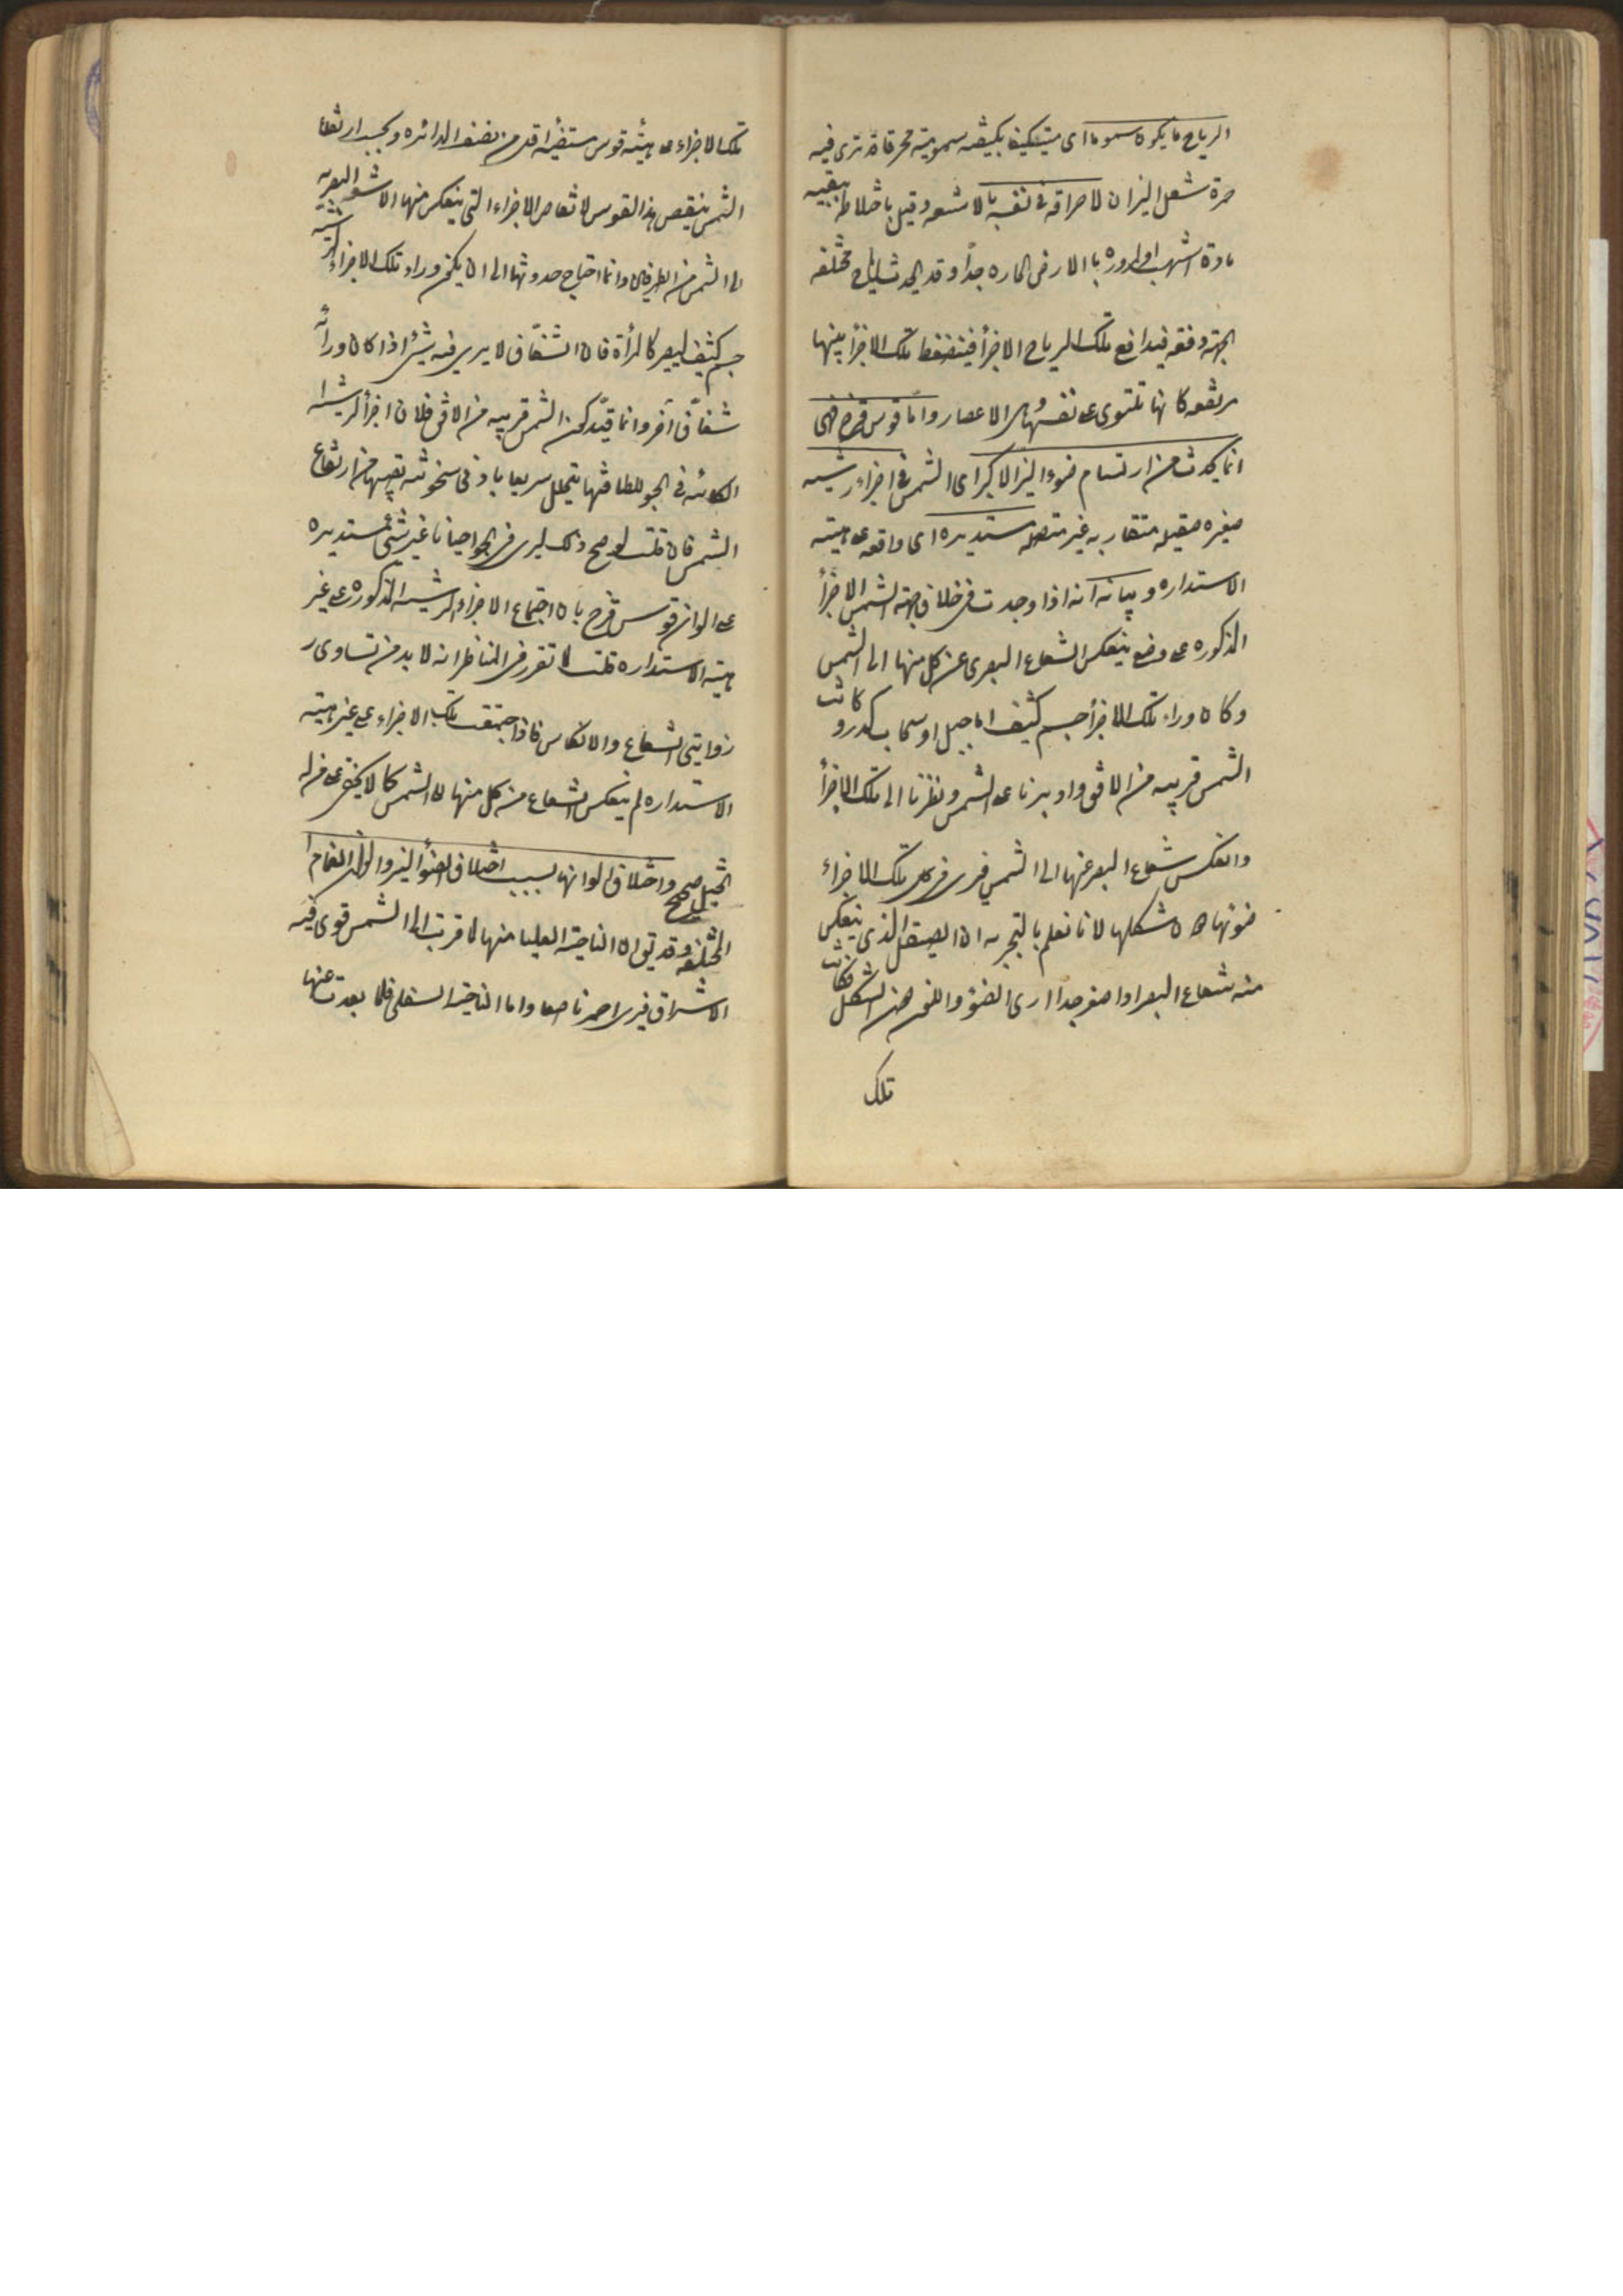 الرياح ما يكون سموما اى متكيفا بكيفيه سموميته محرقا قد ترى فيه
حمرة شعل النيران لاحراقه فى نفسه بالاشعه وقيل باختلاطه ببقيه
مادة الشهب او لمروره بالارض الحاره جدا وقد يحدث رياح مختلفه
الجهة دفعه فيدافع تلك الرياح الاجزأ فينضغط تلك الاجزأ بينها
مرتفعه كانها تلتوى على نفسها وهى الاعصار واما قوس قزح فهى
انما يحدث من ارتسام ضوء النير الاكبر اى الشمس فى اجزاء رشيه
صغيره صقيله متقاربه غير متصله مستديره اى واقعه على هيئة
الاستداره وبيانه انه اذا وجدت فى خلاف جهة الشمس الاجزأ
المذكوره على وضع ينعكس الشعاع البصرى عن كل منها الى الشمس
وكان وراء تلك الاجزأ جسم كثيف اما جبل او سحاب كدر وكانت
الشمس قريبه من الافق وادبرنا على الشمس ونظرنا الى تلك الاجزأ
وانعكس شعاع البصر عنها الى الشمس فيرى فى كل تلك الاجزاء
ضوئها دون شكلها لانا نعلم بالتجربه ان الصيقل الذى ينعكس
منه شعاع البصر اذا صغر جدا ارى الضوء واللون دون الشكل فكانت
تلك
تلك الاجزاء على هيئة قوس مستضيئه اقل من نصف الدائره وبحسب ارتفاع
الشمس ينقص هذا القوس لانتقاص الاجزاء التى ينعكس منها الاشعه البصريه
الى الشمس من الطرفين وانما احتاج حدوثها الى ان يكون وراء تلك الاجزاء الرشيه
جسم كثيف ليصير كالمرأة فان الشفاف لا يرى فيه شيئ اذا كان ورائه
شفاف آخر وانما قيد كون الشمس قريبه من الافق فلان اجزأ الرشيه
الكائنه فى الجو للطافتها يتحلل سريعا بادنى سخونته تصيبها من ارتفاع
الشمس فان قلت لو صح ذلك ليرى فى الجو احيانا غير شئ مستديره
على الوان قوس قزح بان اجتماع الاجزاء الرشيه المذكوره على غير
هيئه الاستداره قلت لما تقرر فى المناظر انه لا بد من تساوى
زوايتى الشعاع والانعكاس فاذا اجتمعت تلك الاجزاء على غير هيئة
الاستداره لم ينعكس الشعاع من كل منها الى الشمس كما لا يخفى على من له
التخيل صحيح واختلاف الوانها بسبب اختلاف الضوأ النير والوان الغمام
المختلفه وقد يقال ان الناحيته العليا منها لما قربت الى الشمس قوى فيه
الاشراق فيرى احمر ناصعا واما الناحيته السفلى فلما بعدت عنها